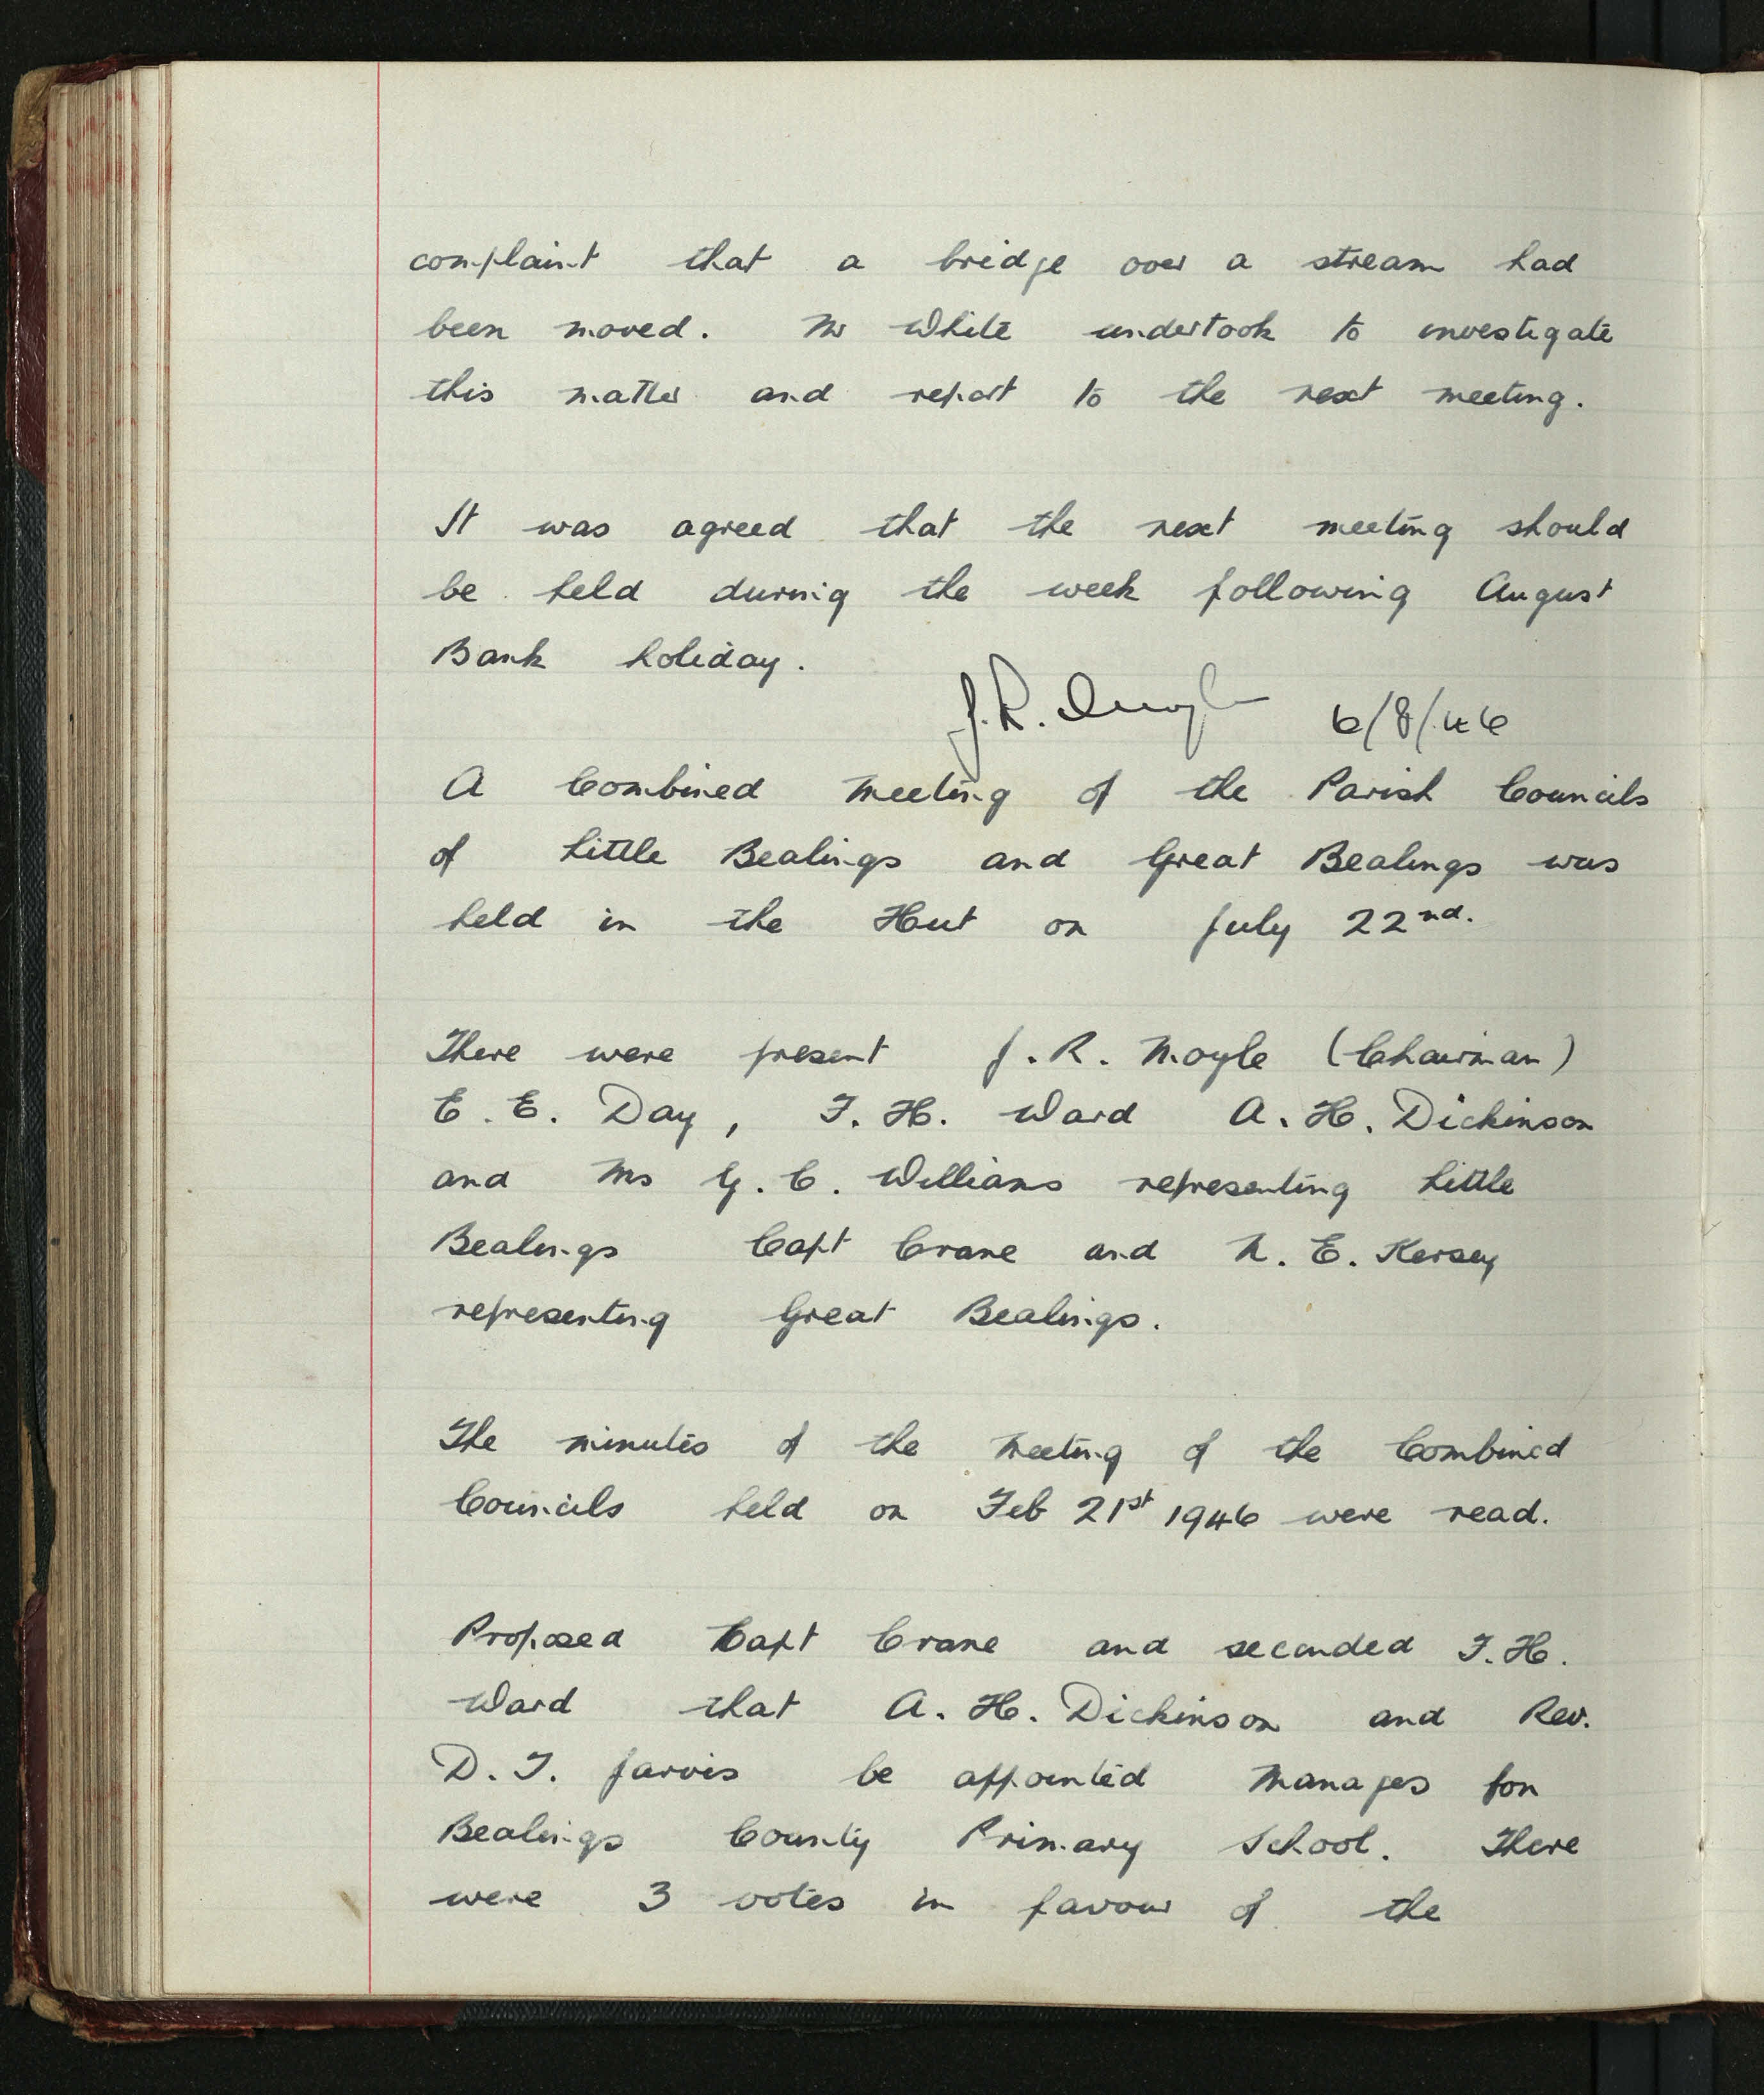 complaint that a bridge over a stream had
been moved. Mr White undertook to investigate
this matter and report to the next meeting.
It was agreed that the next meeting should
be held during the week following August
Bank holiday.
J. R. Moyle 6/8/46
A Combined Meeting of the Parish Councils
of Little Bealings and Great Bealings was
held in the Hut on July 22nd.
There were present J. R. Moyle (Chairman)
E. E. Day, F. H. Ward A. H. Dickinson
and Mrs G. C. Williams representing Little
Bealings Capt Crane and L. E. Kersey
representing Great Bealings.
The minutes of the Meeting of the Combined
Councils held on Feb 21st 1946 were read.
Proposed Capt Crane and seconded F. H.
Ward that A. H. Dickinson and Rev.
D. T. Jarvis be appointed Manages for
Bealings County Primary School. There
were 3 votes in favour of the